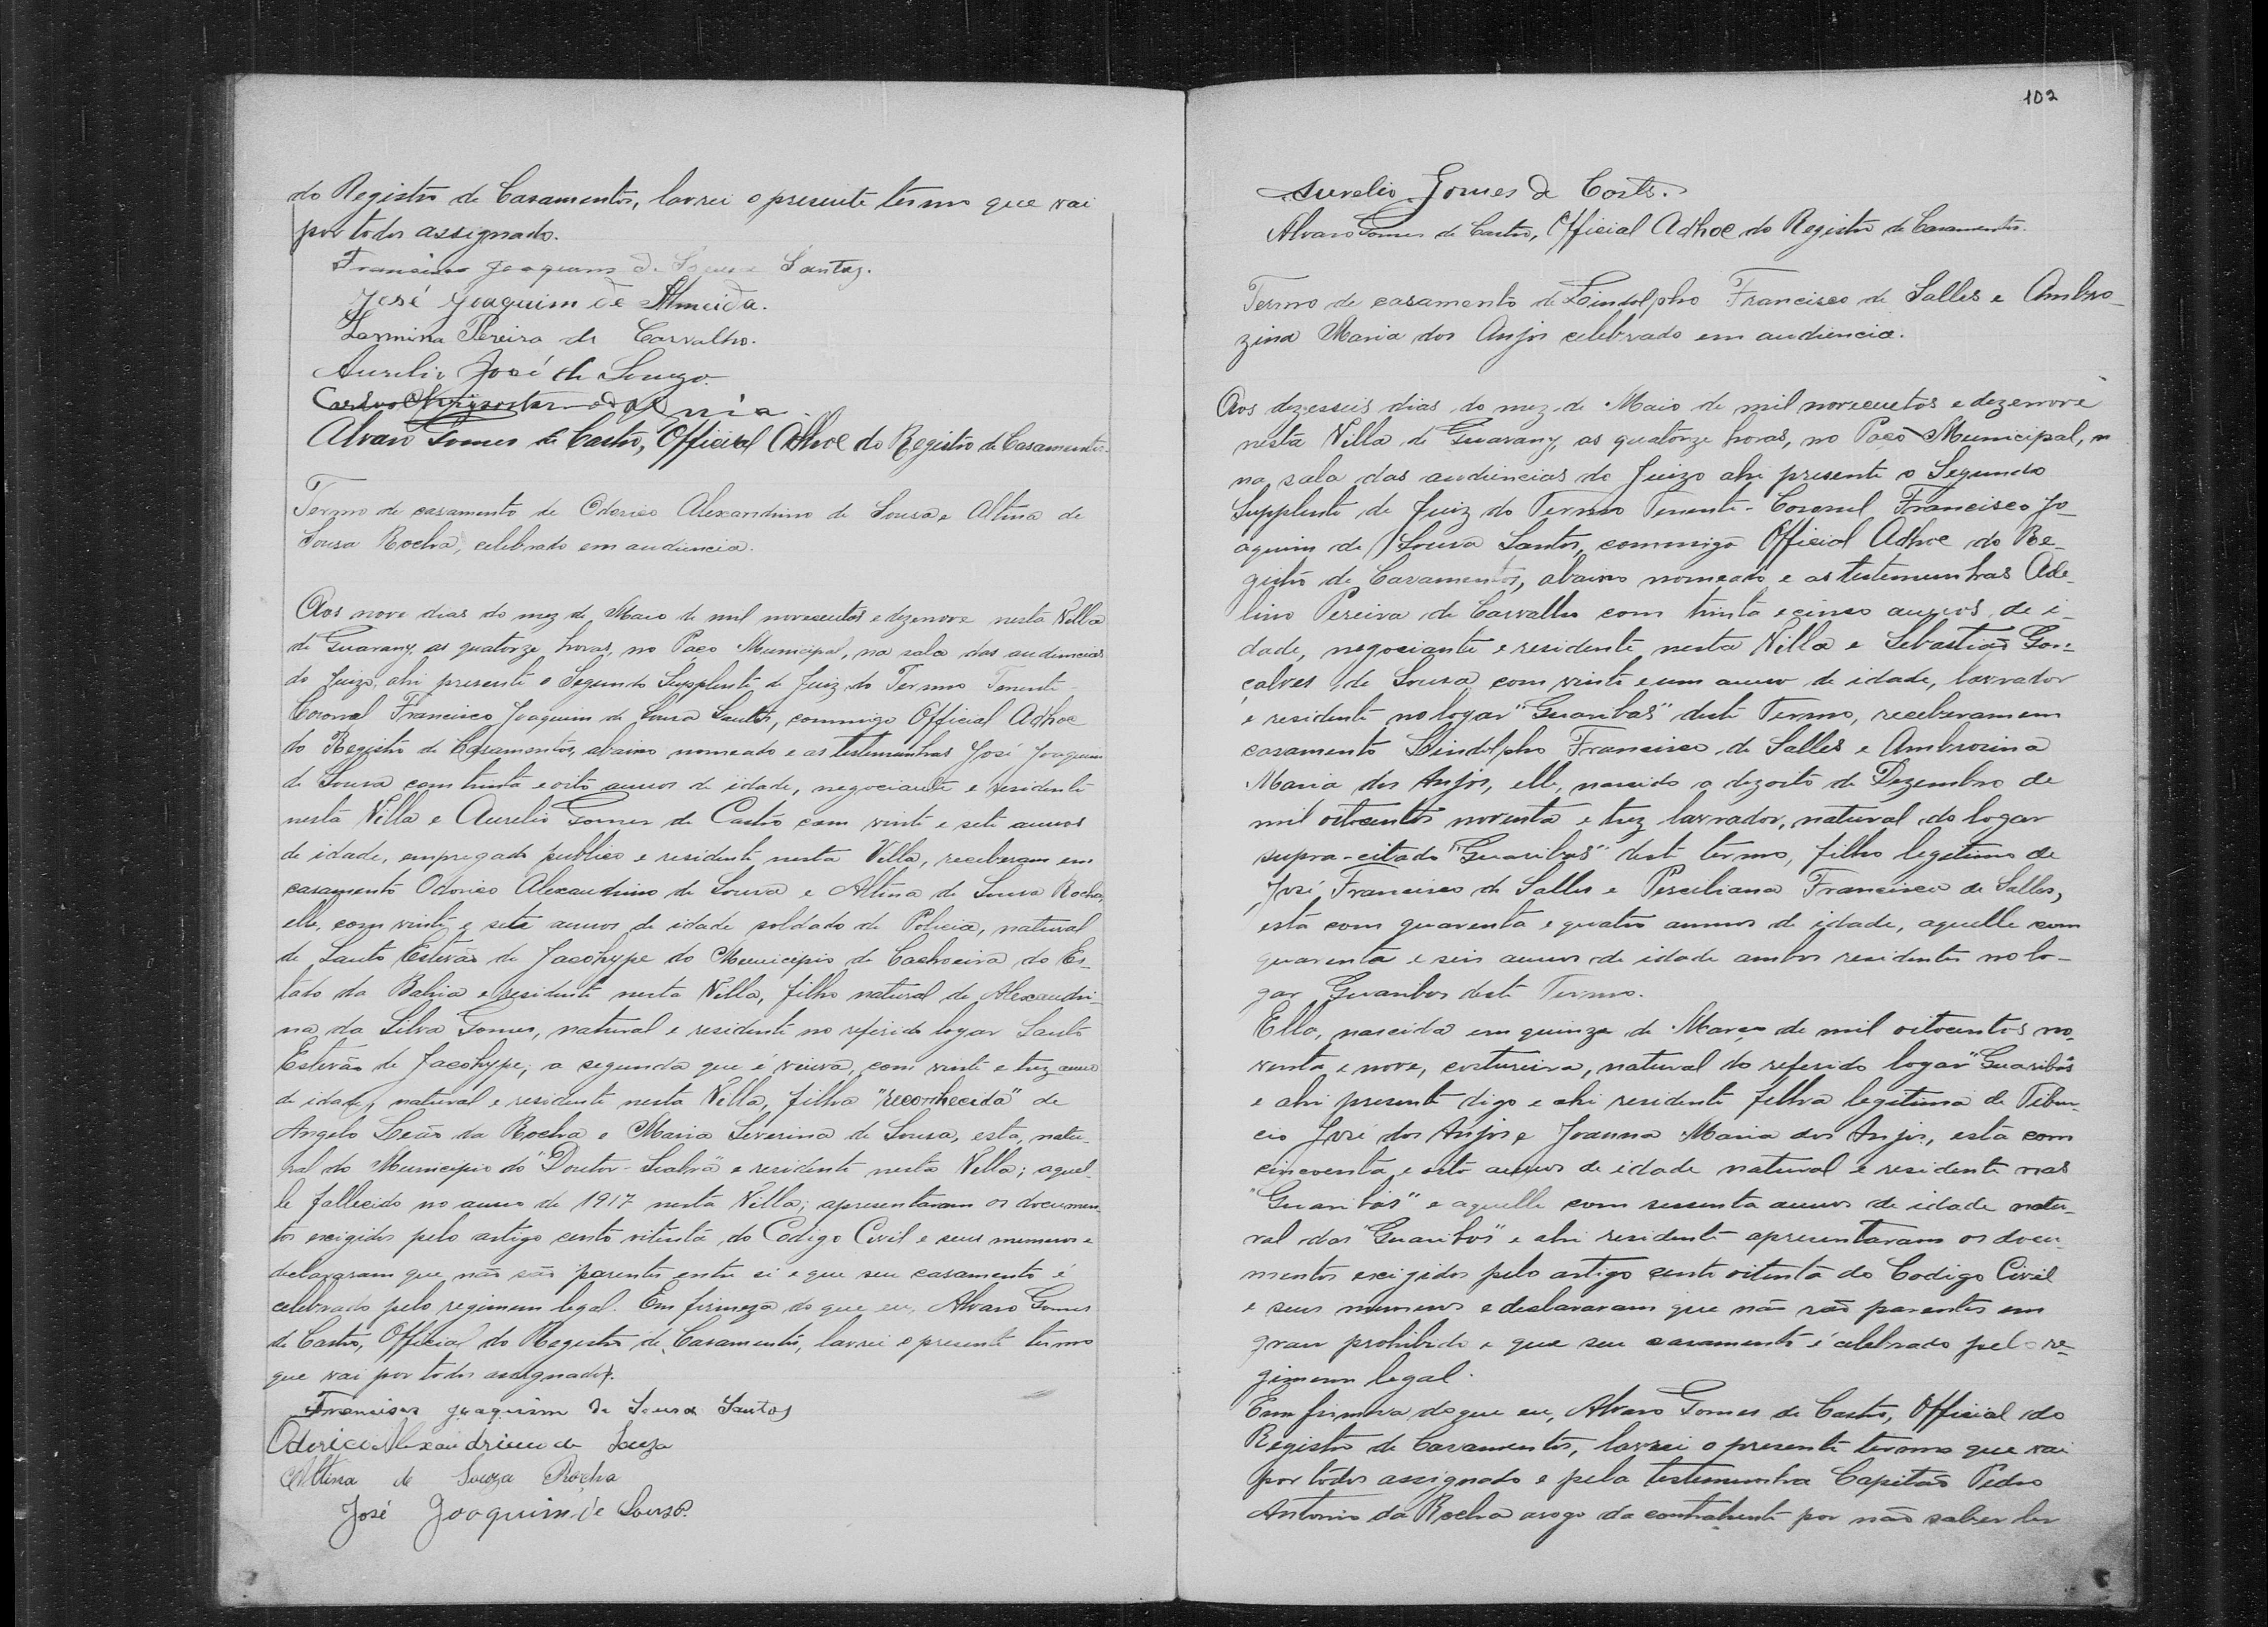 do Registro de Casamentos, lavrei o presente termo que vai
por todos assignado.
Francisco Joaquim de Souza Santos.
José Joaquim de Almeida.
Larmina Pereira de Carvalho.
Aurelio José de Souza.
Alvaro Gomes de Castro, Official Adhoc do Registro de Casamentos.
Termo de casamento de Oderico Alexandrino de Sousa e Altina de
Sousa Rocha, celebrado em audiencia.
Aos nove dias do mez de Maio de mil novecentos e dezenove nesta Villa
de Guarany, as quatorze horas, no Paço Municipal, na sala das audiencias
do Juizo, ahi presente o Segundo Supplente de Juiz do Termo Tenente-
Coronel Francisco Joaquim de Sousa Santos, commigo Official Adhoc
do Registro de Casamentos, abaixo nomeado e as testemunhas José Joaquim
de Sousa com trinta e oito annos de idade, negociante e residente
nesta Villa e Aurelio Gomes de Castro com vinte e sete annos
de idade, empregado publico e residente nesta Villa, receberam em
casamento Odorico Alexandrino de Sousa e Altina de Sousa Rocha,
elle, com vinte e sete annos de idade soldado de Policia, natural
de Santo Estevão de Jacohype do Municipio de Cachoeira do Es-
tado da Bahia e residente nesta Villa, filho natural de Alexandri-
na da Silva Gomes, natural e residente no referido logar Santo
Estevão de Jacohype; a segunda que é viuva, com vinte e trez annos
de idade, natural e residente nesta Villa, filha "reconhecida" de
Angelo Leão da Rocha e Maria Severina de Sousa, esta, natu-
ral do Municipio do "Doutor-Seabra" e residente nesta Villa; aquel-
le fallecido no anno de 1917 nesta Villa; apresentaram os documen-
tos exigidos pelo artigo cento oitenta do Codigo Civil e seus numeros e
declararam que não são parentes entre si e que seu casamento é
celebrado pelo regimem legal. Em firmeza do que eu, Alvaro Gomes
de Castro, Official do Registro de Casamentos, lavrei o presente termo
que vai por todos assignados.
Francisco Joaquim de Sousa Santos
Oderico Alexandrino de Souza
Altina de Souza Rocha
José Joaquim de Sousa.
102
Aurelio Gomes de Castro.
Alvaro Gomes de Castro, Official Adhoc do Registro de Casamentos.
Termo de casamento de Lindolpho Francisco de Salles e Ambro-
zina Maria dos Anjos celebrado em audiencia.
Aos dezesseis dias do mez de Maio de mil novecentos e dezenove
nesta Villa de Guarany, as quatorze horas, no Paço Municipal, n
na sala das audiencias do Juizo ahi presente o Segundo
Supplente de Juiz do Termo Tenente-Coronel Francisco Jo-
aquim de Sousa Santos, commigo Official Adhoc do Re-
gistro de Casamentos, abaixo nomeado e as testemunhas Ade-
lino Pereira de Carvalho com trinta e cinco annos de i-
dade, negociante e residente nesta Villa e Sebastião Gon-
çalves de Sousa com vinte e um anno de idade, lavrador
e residente no logar "Guaribas" deste Termo, receberam em
casamento Lindolpho Francisco de Salles e Ambrosina
Maria dos Anjos, elle, nascido a dezoito de Dezembro de
mil oitocentos noventa e trez lavrador, natural do logar
supra-citado "Guaribas" deste termo, filho legitimo de
José Francisco de Salles e Perciliana Francisca de Salles,
esta com quarenta e quatro annos de idade, aquelle com
quarenta e seis annos de idade ambos residentes no lo-
gar Guaribas deste Termo.
Ella, nascida em quinze de Março de mil oitocentos no-
venta e nove, costureira, natural do referido logar "Guaribas"
e ahi presente digo e ahi residente filha legitima de Tibur-
cio José dos Anjos e Joanna Maria dos Anjos, esta com
cincoenta e oito annos de idade natural e residente nas
"Guaribas" e aquelle com sessenta annos de idade natu-
ral das "Guaribas" e ahi residente apresentaram os docu-
mentos exigidos pelo artigo cento oitenta do Codigo Civil
e seus numeros e declararam que não são parentes em
grau prohibido e que seu casamento é celebrado pelo re-
gimem legal.
Em firmeza do que eu, Alvaro Gomes de Castro, Official do
Registro de Casamentos, lavrei o presente termo que vai
por todos assignado e pela testemunha Capitão Pedro
Antonio da Rocha arogo da contrahente por não saber ler